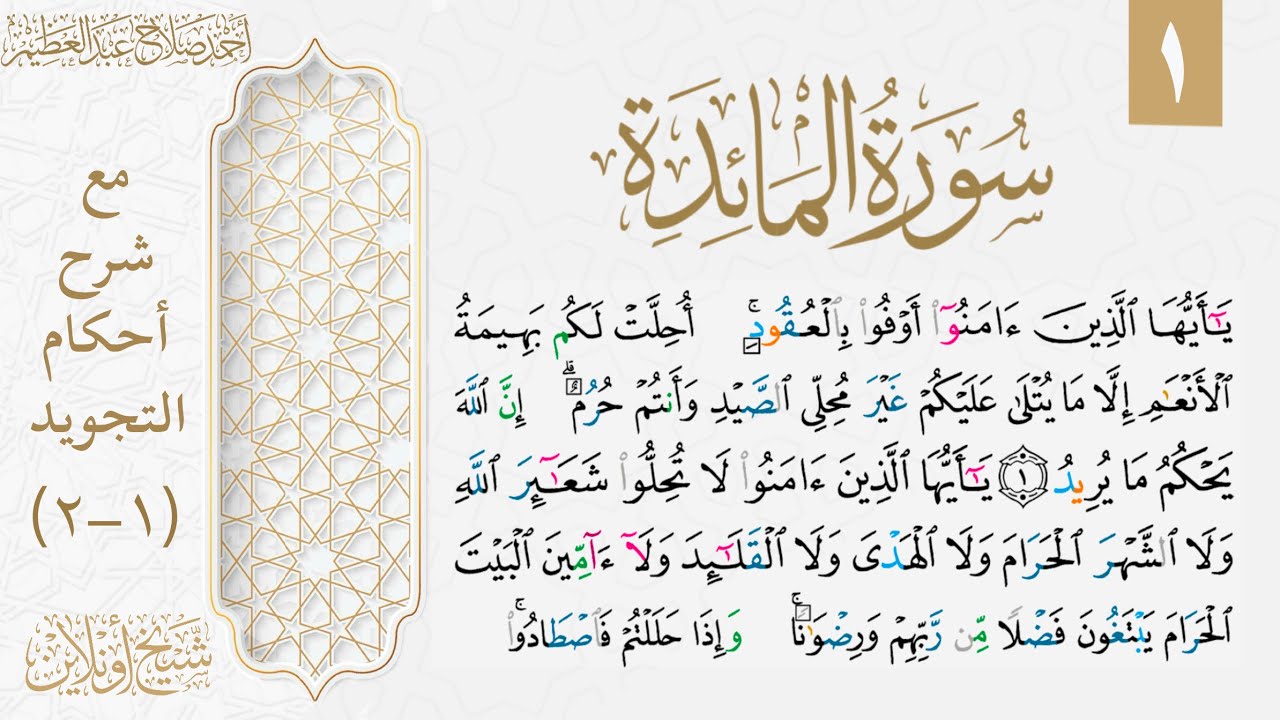 ١
أحمد صلاح عبد العظيم
سُورَةُ الْمَائِدَةِ
مع
شرح
أحكام
التجويد
(١-٢)
يَـٰٓأَيُّهَا ٱلَّذِينَ ءَامَنُوٓا۟ أَوْفُوا۟ بِٱلْعُقُودِ ۚ أُحِلَّتْ لَكُم بَهِيمَةُ
ٱلْأَنْعَـٰمِ إِلَّا مَا يُتْلَىٰ عَلَيْكُمْ غَيْرَ مُحِلِّى ٱلصَّيْدِ وَأَنتُمْ حُرُمٌ ۗ إِنَّ ٱللَّهَ
يَحْكُمُ مَا يُرِيدُ ١ يَـٰٓأَيُّهَا ٱلَّذِينَ ءَامَنُوا۟ لَا تُحِلُّوا۟ شَعَـٰٓئِرَ ٱللَّهِ
وَلَا ٱلشَّهْرَ ٱلْحَرَامَ وَلَا ٱلْهَدْىَ وَلَا ٱلْقَلَـٰٓئِدَ وَلَآ ءَآمِّينَ ٱلْبَيْتَ
ٱلْحَرَامَ يَبْتَغُونَ فَضْلًا مِّن رَّبِّهِمْ وَرِضْوَٰنًا ۚ وَإِذَا حَلَلْتُمْ فَٱصْطَادُوا۟ ۚ
شيخ أونلاين